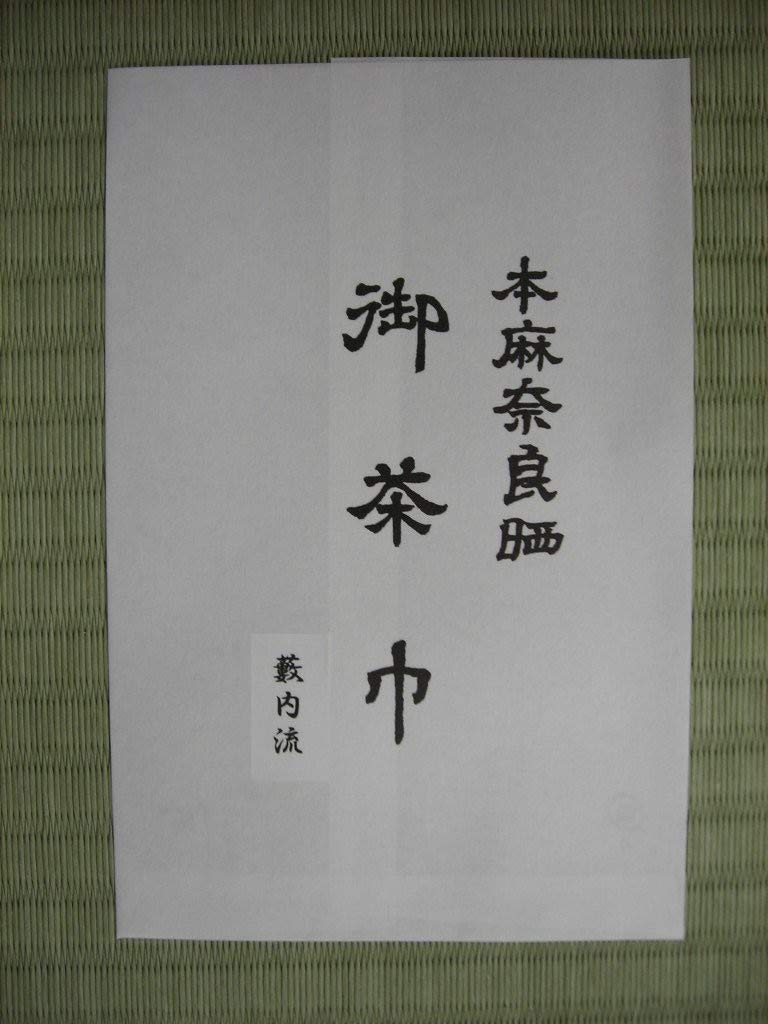 本麻奈良晒
御茶巾
藪内流